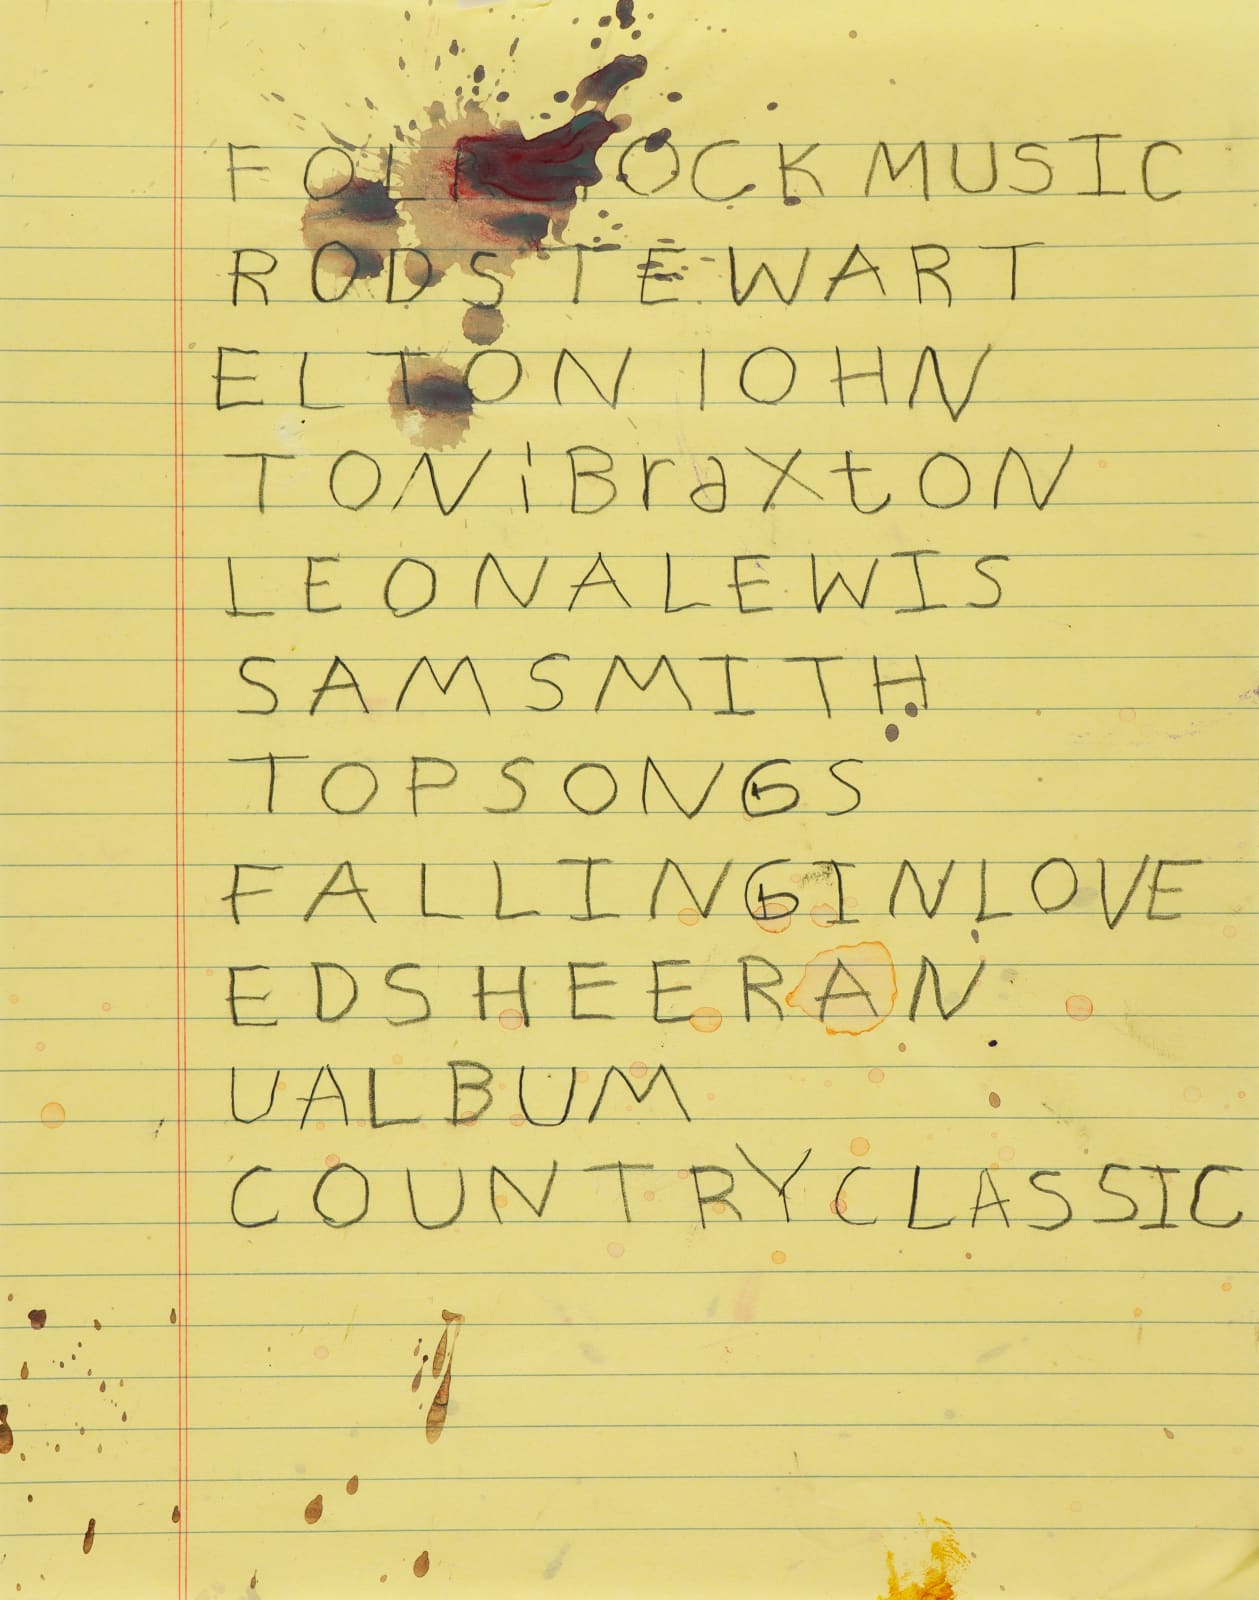 MUSIC
ROD STEWART
ELTON IOHN
TONi BraXtON
LEONA LEWIS
SAM SMITH
TOP SONGS
FALLING IN LOVE
ED SHEERAN
UALBUM
COUNTRY CLASSIC